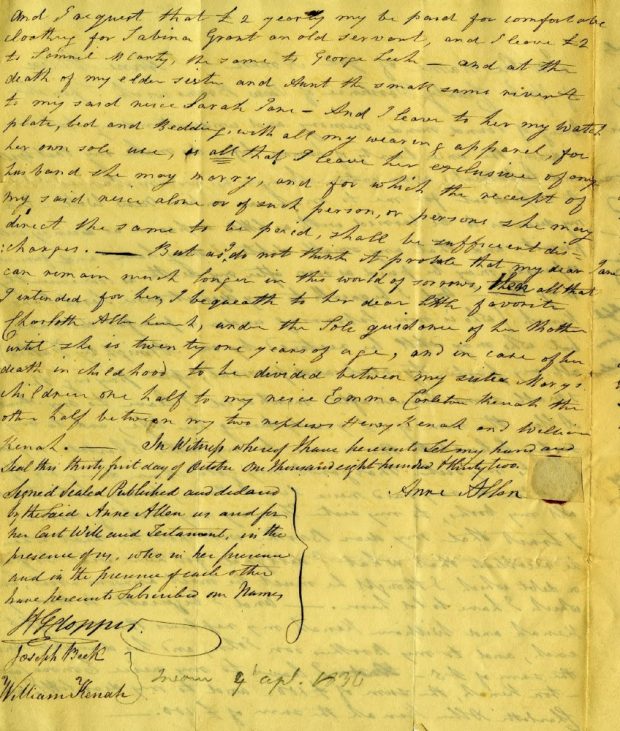 And I request that £2 yearly my be paid for comfortable
cloathing for Sabina Grant an old servant, and I leave £2
to Samuel McCarty, the same to George Leek — and at the
death of my elder sister and Aunt the small same
to my said neice Sarah Jane — And I leave to her my Watch
plate, bed and Bedding, with all my wearing apparel, for
her own sole use, is all that I leave her exclusive of any
husband she may marry, and for which the receipt of
my said neice alone or of such person, or persons she may
direct the same to be paied, shall be sufficient dis-
:charges. — But as I do not think it probable that my dear Jane
can remain much longer in this world of sorrows, then all that
I intended for her, I bequeath to her dear little favorite
Charlotte Allen Kenah, under the Sole guidance of her Mother
until she is twenty one years of age, and in case of her
death in childhood to be divided between my sister Marys
children one half to my neice Emma Carleton Kenah the
other half between my two nephews Henry Kenah and William
Kenah. — In Witness whereof I have hereunto Set my hand and
Seal this thirty first day of October One thousand eight hundred & thirty two.
Anne Allen
Signed Sealed Published and declared
by the Said Anne Allen as and for
her Last Will and Testament, in the
presence of us, who in her presence
and in the presence of each other
have hereunto Subscribed our Names
Joseph Beek
William Kenah
apl. 1836